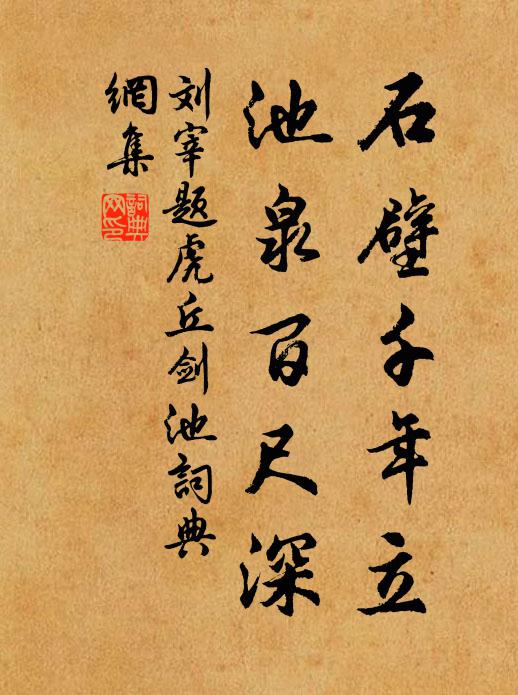 石壁千年立
池泉百尺深
刘宰题虎丘剑池詞典
網集
詞典
网印